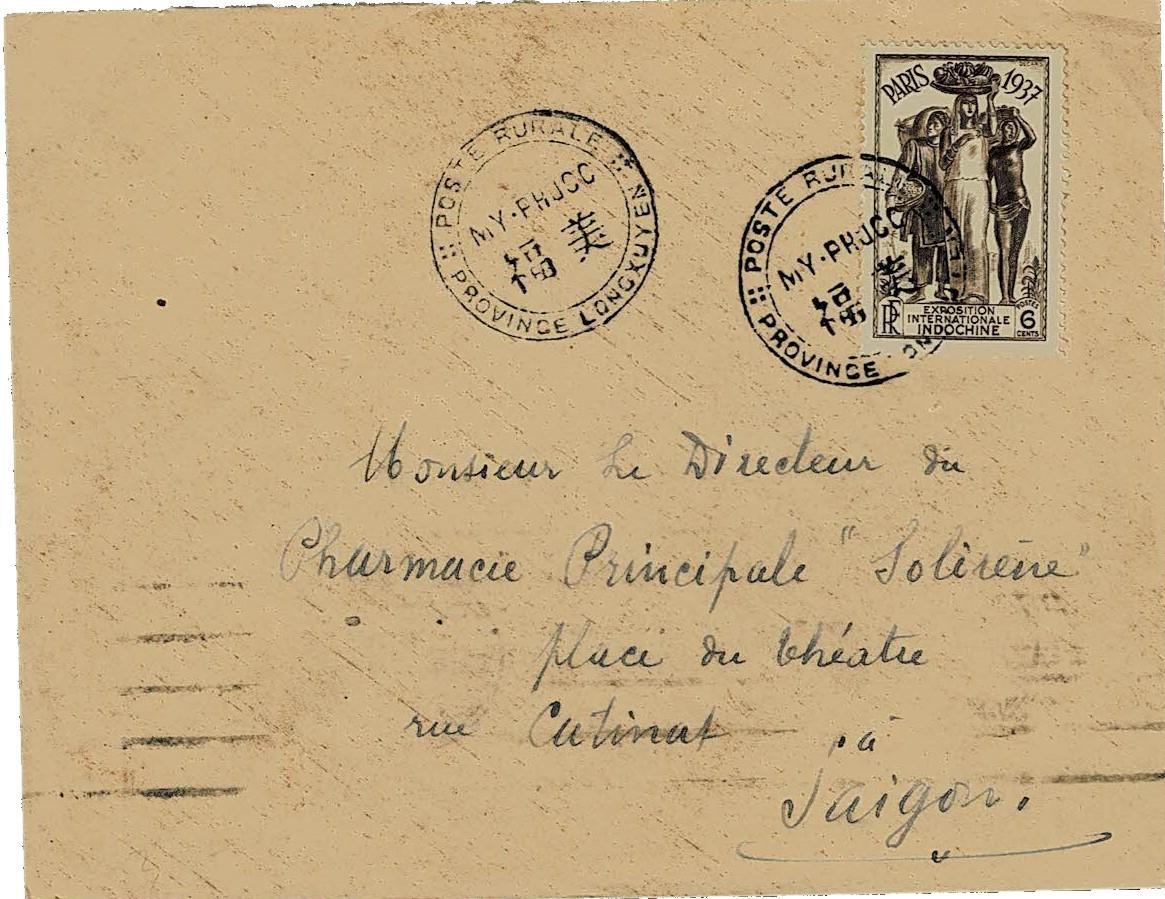 POSTE RURALE
MY-PHUOC
美
福
PROVINCE LONGXUYEN
PARIS 1937
POSTE RURAL
MY-PHUOC
美
福
PROVINCE
RF
EXPOSITION
INTERNATIONALE
INDOCHINE
POSTES
6
CENTS
Monsieur Le Directeur du
Pharmacie Principale "Solirène"
place du théatre
rue Catinat
à
Saigon.